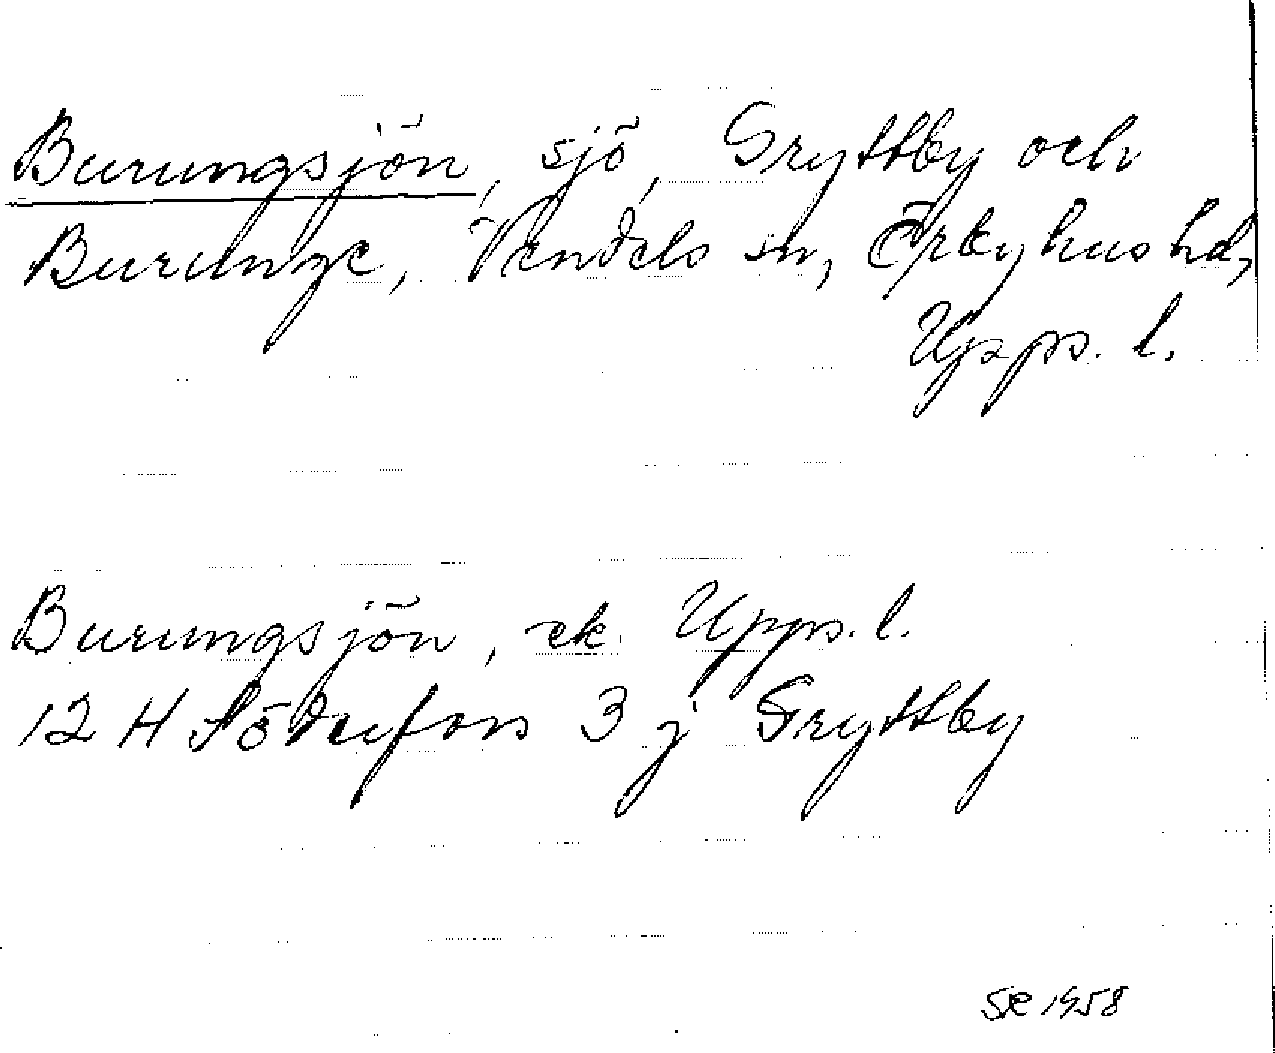 Burungsjön, sjö, Gryttby och
Burunge, Vendels sn, Örbyhus hd,
Upps. l.
Burungsjön, ek. Upps. l.
12 H Söderfors 3 j Gryttby
SE 1958